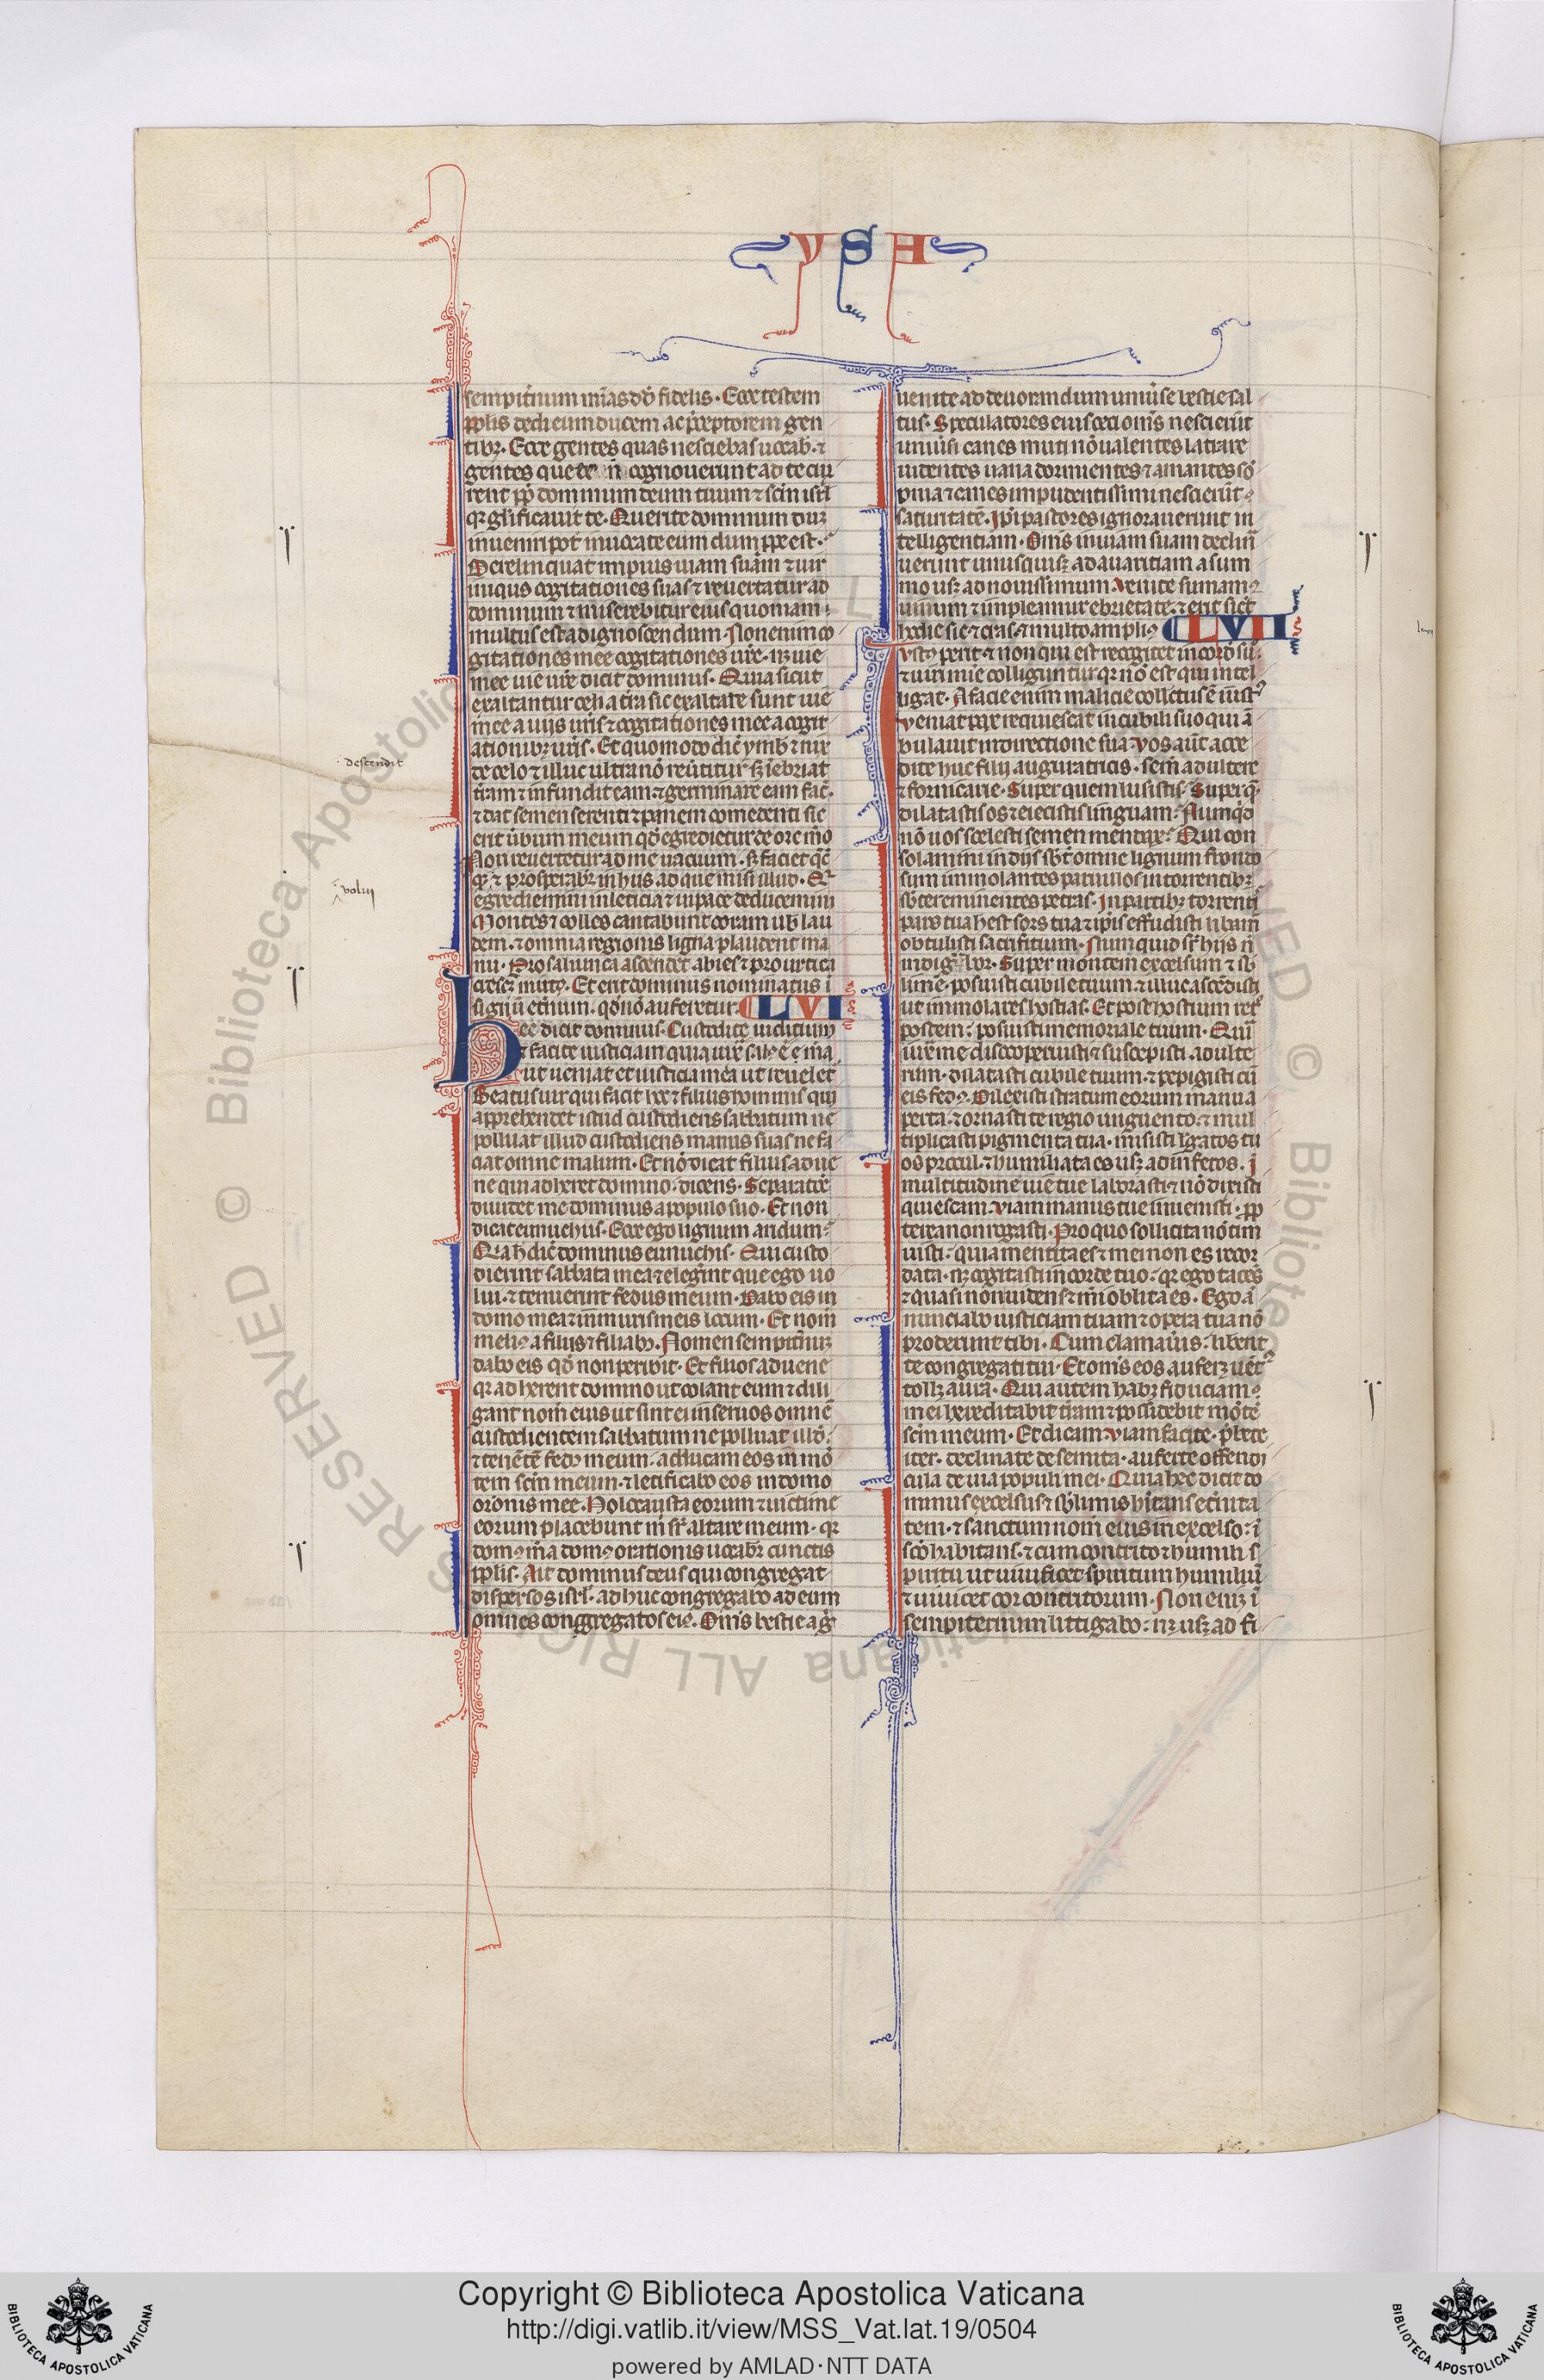 YSA
sempit͛num mīas dd̄ fidelis. Ecce testem
pplis dedi eum ducem ac p̄ceptorem gen
tibꝫ. Ecce gentes quas nesciebas uocab. ⁊
gentes que te n̄ cognouerunt ad te cur
rent ꝓpt̄ dominum deum tuum ⁊ scm̄ isrl̄
qr̄ glificauit te. Querite dominum duꝫ
inueniri pot̄ inuocate eum dum ꝓpe est.
Derelinquat impius uiam suam ⁊ uir
iniquus cogitationes suas ⁊ reuertatur ad
dominum ⁊ miserebitur eius quoniam
multus est ad ignoscendum. Non enim co
gitationes mee cogitationes ur̄e. neqꝫ uie
mee uie ur̄e dicit dominus. Quia sicut
exaltantur celi a tr̄a sic exaltate sunt uie
mee a uiis ur̄is ⁊ cogitationes mee a cogit
ationibꝫ ur̄is. Et quomodo dic̄ ymb̄ ⁊ nix
de celo ⁊ illuc ultra nō reūtitur sꝫ īebriat
tr̄am ⁊ infundit eam ⁊ germinare eam fac̄.
⁊ dat semen serenti ⁊ panem comedenti sic
erit ūbum meum qd̄ egredietur de ore meo
Non reuertetur ad me uacuum. sꝫ faciet q̄c̄
qꝫ ⁊ prosperabit̄ in hiis ad que misi illud. Qr̄
egrediemini in leticia ⁊ in pace deducemini
Montes ⁊ colles cantabunt coram uob̄ lau
dem. ⁊ omnia regionis ligna plaudent ma
nu. Pro saliunca ascendet abies ⁊ pro urtica
crescꝫ mirtꝰ. Et erit dominus nominatus ī
signū et̄num. qd̄ nō auferetur. LVI
Hec dicit dominus. Custodite iudicium
⁊ facite iusticiam quia iux̄ salꝰ ē mea
ut ueniat et iusticia mea ut reueletᷣ
Beatus uir qui facit hec ⁊ filius hominis qui
apprehendet istud custodiens sabbatum ne
polluat illud custodiens manus suas ne fa
ciat omne malum. Et nō dicat filius adue
ne qui adheret domino. dicens. Separatōe
diuidet me dominus a populo suo. Et non
dicat eunuchus. Ecce ego lignum aridum.
Quia h̄ dic̄ dominus eunuchis. Qui custo
dierint sabbata mea ⁊ eleḡint que ego uo
lui. ⁊ tenuerint fedus meum. Dabo eis in
domo mea ⁊ in muris meis locum. Et nom̄
meliꝰ a filiis ⁊ filiabꝫ. Nomen sempit̄nuꝫ
dabo eis qd̄ non peribit. Et filios aduene
qr̄ adherent domino ut colant eum ⁊ dili
gant nom̄ eius ut sint ei in seruos omnē
custodientem sabbatum ne polluat illd̄.
⁊ tenētē fedꝰ meum. adducam eos in mō
tem scm̄ meum. ⁊ letificabo eos in domo
orōnis mee. Holocausta eorum ⁊ uictime
eorum placebunt m̄ sr̄ altare meum. qr̄
domꝰ m̄a domꝰ orationis uocabit̄ cunctis
pplis. Ait dominus deus qui congregat
dispersos isrl̄. adhuc congregabo ad eum
omnes congregatos eiꝰ. Om̄s bestie agⁱ
uenite ad deuorandum uniūse bestie sal
tus. Speculatores eius ceci om̄s nescierūt
uniūsi canes muti nō ualentes latrare
uidentes uana dormientes ⁊ amantes sō
pnia ⁊ canes impudentissimi nescierūt
saturitatē. Ipsi pastores ignorauerunt in
telligentiam. Om̄s in uiam suam declin̄
uerunt unusquisqꝫ ad auaritiam a sum
mo usqꝫ ad nouissimum. Venite sumamꝰ
uinum ⁊ impleamur ebrietate. ⁊ erit sicut
hodie sic ⁊ cras. ⁊ multo ampliꝰ LVII
Iustꝰ perit ⁊ non qui est recogitet in corde suo.
⁊ uiri mīe colliguntur qr̄ nō est qui intel
ligat. A facie enim malicie collectus ē iustꝰ
Veniat pax requiescat in cubili suo qui ā
bulauit in directione sua. Vos aūt acce
dite huc filii auguratricis. sem̄ adultere
⁊ fornicarie. Super quem lusistis. Super q̄
dilatastis os ⁊ eiecistis linguam. Numqd̄
nō uos scelesti semen mendax. Qui con
solamini in diis sbt̄ omne lignum frondo
sum immolantes paruulos in torrentibꝫ
sbt̄ eminentes petras. In partibꝫ torrentis
pars tua hec est sors tua ⁊ ipsis effudisti libam̄
obtulisti sacrificium. Numquid sr̄ hiis n̄
indignabor. Super montem excelsum ⁊ sb̄
lime. posuisti cubile tuum. ⁊ illuc ascēdisti
ut immolares hostias. Et post hostium retᵒ
postem. posuisti memoriale tuum. Quia
iux̄ me discooperuisti ⁊ suscepisti adulte
rum. dilatasti cubile tuum. ⁊ pepigisti cū
eis fedꝰ. Dilexisti stratum eorum manu a
perta. ⁊ ornasti te regio unguento. ⁊ mul
tiplicasti pigmenta tua. misisti legatos tu
os procul. ⁊ humiliata es usqꝫ ad inferos. I
multitudine uie tue laborasti ⁊ nō dixisti
quiescam. Viam manus tue inuenisti. ꝓp
terea non rogasti. Pro quo sollicita nō tim
uisti. quia mentita es ⁊ mei non es recor
data. neqꝫ cogitasti in corde tuo. qr̄ ego tacēs
⁊ quasi non uidens ⁊ m̄i oblita es. Ego ā
nunciabo iusticiam tuam ⁊ opera tua nō
proderunt tibi. Cum clamaūis. libent
te congregati tui. Et om̄s eos auferꝫ uentꝰ
tollꝫ aura. Qui autem habꝫ fiduciam
mei hereditabit tr̄am ⁊ possidebit mōtē
scm̄ meum. Et dicam. Viam facite. p̄bete
iter. declinate de semita. auferte offendi
cula de uia populi mei. Quia hec dicit do
minus excelsus ⁊ sb̄limis hītans et̄nita
tem. ⁊ sanctum nom̄ eius in excelso. ī
sco habitans. ⁊ cum contrito ⁊ humili s
piritu ut uiuificet spiritum humiliū
⁊ uiuicet cor contritorum. Non eniꝫ ī
sempiternum littigabo. neqꝫ usqꝫ ad fi
descendit
volui
Copyright © Biblioteca Apostolica Vaticana
http://digi.vatlib.it/view/MSS_Vat.lat.19/0504
powered by AMLAD·NTT DATA
BIBLIOTECA APOSTOLICA VATICANA
BIBLIOTECA APOSTOLICA VATICANA
© Biblioteca Apostolica Vaticana ALL RIGHTS RESERVED